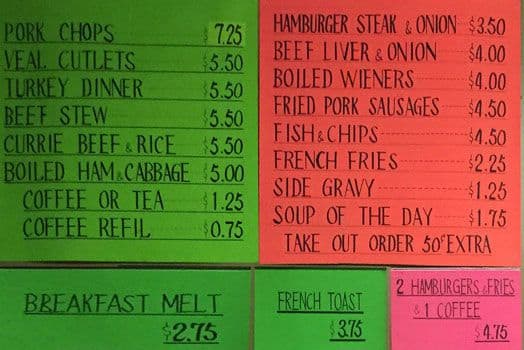 PORK CHOPS 7.25
VEAL CUTLETS $5.50
TURKEY DINNER $5.50
BEEF STEW $5.50
CURRIE BEEF & RICE $5.50
BOILED HAM & CABBAGE $5.00
COFFEE OR TEA $1.25
COFFEE REFIL $0.75
HAMBURGER STEAK & ONION $3.50
BEEF LIVER & ONION $4.00
BOILED WIENERS $4.00
FRIED PORK SAUSAGES $4.50
FISH & CHIPS $4.50
FRENCH FRIES $2.25
SIDE GRAVY $1.25
SOUP OF THE DAY $1.75
TAKE OUT ORDER 50¢ EXTRA
BREAKFAST MELT
$2.75
FRENCH TOAST
$3.75
2 HAMBURGERS & FRIES
& 1 COFFEE
$4.75